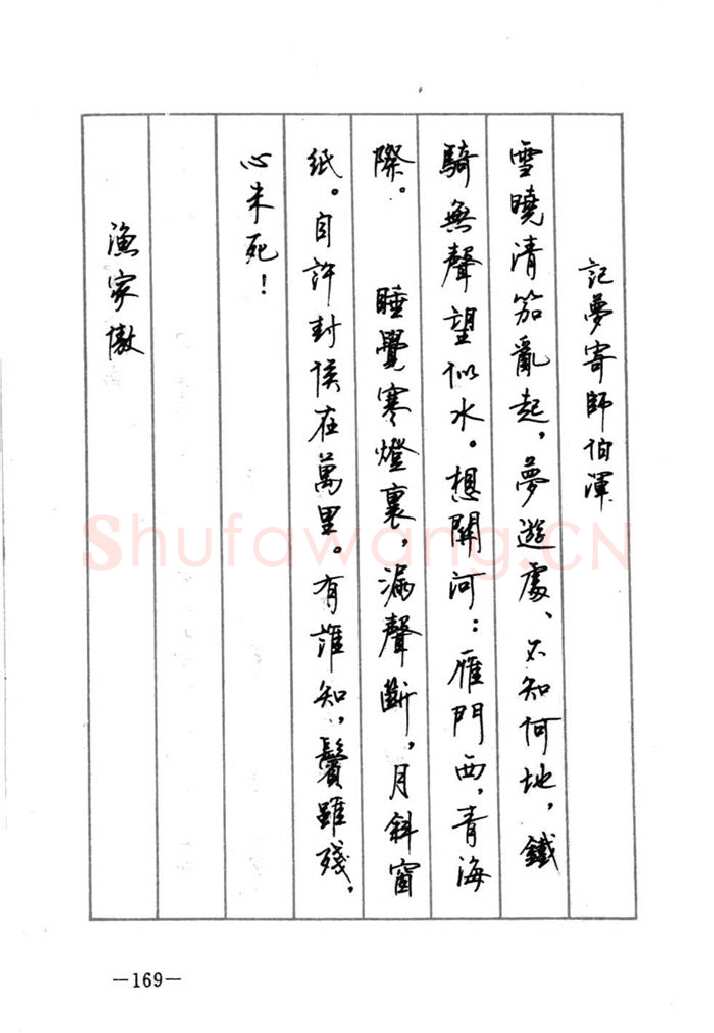 記夢寄師伯渾
雪曉清笳亂起，夢遊處、不知何地，鐵
騎無聲望似水。想關河：雁門西，青海
際。 睡覺寒燈裏，漏聲斷，月斜窗
紙。自許封侯在萬里。有誰知，鬢雖殘，
心未死！
漁家傲
—169—
Shufawang.CN